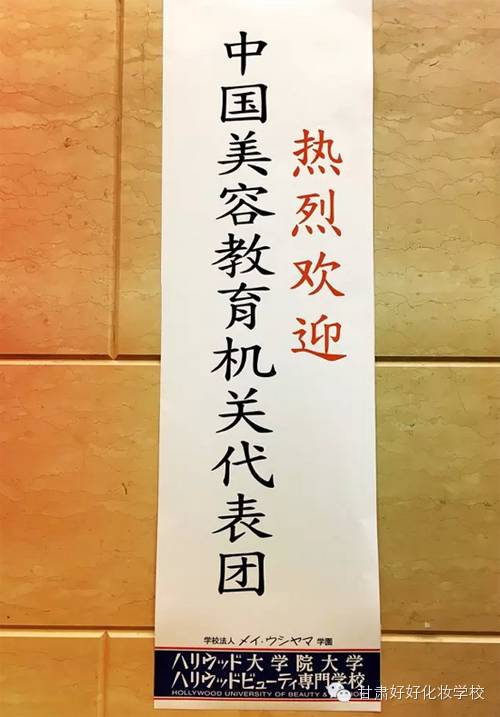 热烈欢迎
中国美容教育机关代表团
学校法人 メイ・ウシヤマ 学園
ハリウッド大学院大学
ハリウッドビューティ専門学校
HOLLYWOOD UNIVERSITY OF BEAUTY &
甘肃好好化妆学校